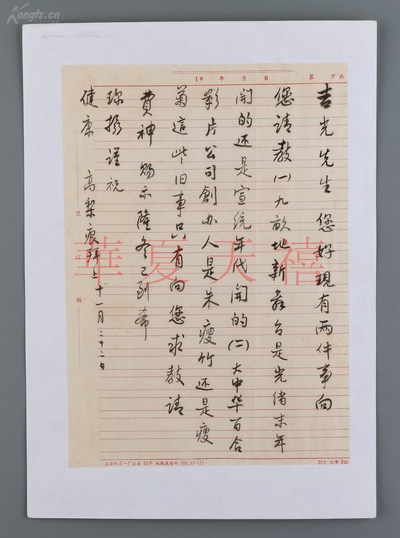 Kongfz.cn
19 年 月 日 第 頁共
吉光先生您好現有两件事向
您請教(一)九畝地新舞台是光绪末年
開的还是宣统年代開的(二)大中华百合
影片公司創办人是朱瘦竹还是瘦
菊這些旧事只有向您求教請
費神賜示隆冬已到希
珍摄谨祝
健康 高梨痕拜上十一月二十二日
華夏天禧